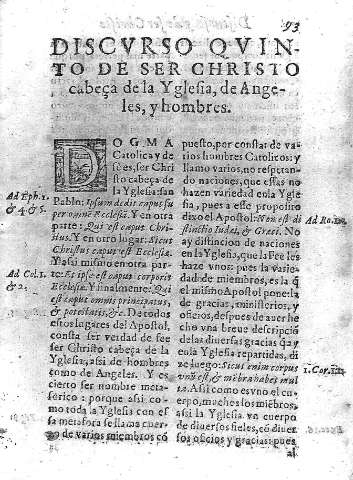 93
DISCVRSO QVIN-
TO DE SER CHRISTO
cabeça de la Yglesia, de Ange-
les, y hombres.
DOGMA
Catolica y de
fee es, ser Chri
sto cabeça de
la Yglesia: san
Pablo: Ipsum dedit caput su
per omne Ecclesiã. Y en otra
parte: Qui est caput Chri-
stus. Y en otro lugar: Sicut
Christus caput est Ecclesiæ.
Y asi mismo en otra par-
te: Et ipse est caput corporis
Ecclesiæ. Y finalmente: Qui
est caput omnis principatus,
& potestatis, &c. De todos
estos lugares del Apostol,
consta ser verdad de fee
ser Christo cabeça de la
Yglesia, asi de hombres
como de Angeles. Y es
cierto ser nombre meta-
forico: porque asi co-
mo toda la Yglesia con es
ta metafora se llama cuer
po de varios miembros cõ
Ad Eph. 1.
& 4 & 5.
Ad Col. 1.
& 2.
puesto, por constar de va-
rios hombres Catolicos: y
llamo varios, no respetan-
do naciones, que estas no
hazen variedad en la Ygle
sia, pues a este proposito
dixo el Apostol: Non est di
stinctio Iudæi, & Græci. No
ay distincion de naciones
en la Yglesia, que la Fee los
haze vnos: pues la varie-
dad de miembros, es la q̃
el mismo Apostol pone: la
de gracias, ministerios, y
oficios, despues de auer he
cho vna breue descripciõ
de las diuersas gracias que
en la Yglesia repartidas, di
ze luego: Sicut enim corpus
vnũ est & mẽbra habet mul
ta. Asi como es vno el cu-
erpo, muchos los miẽbros,
asi la Yglesia vn cuerpo
de diuersos fieles, cõ diuer
sos oficios y gracias: pues
Ad Ro.
1. Cor. 12.
al